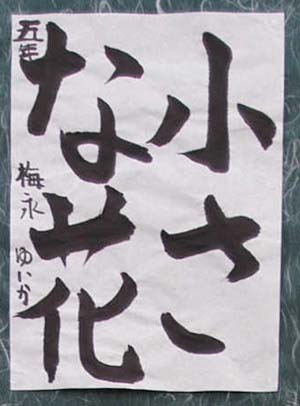 小さ
な花
五年 梅永 ゆいか